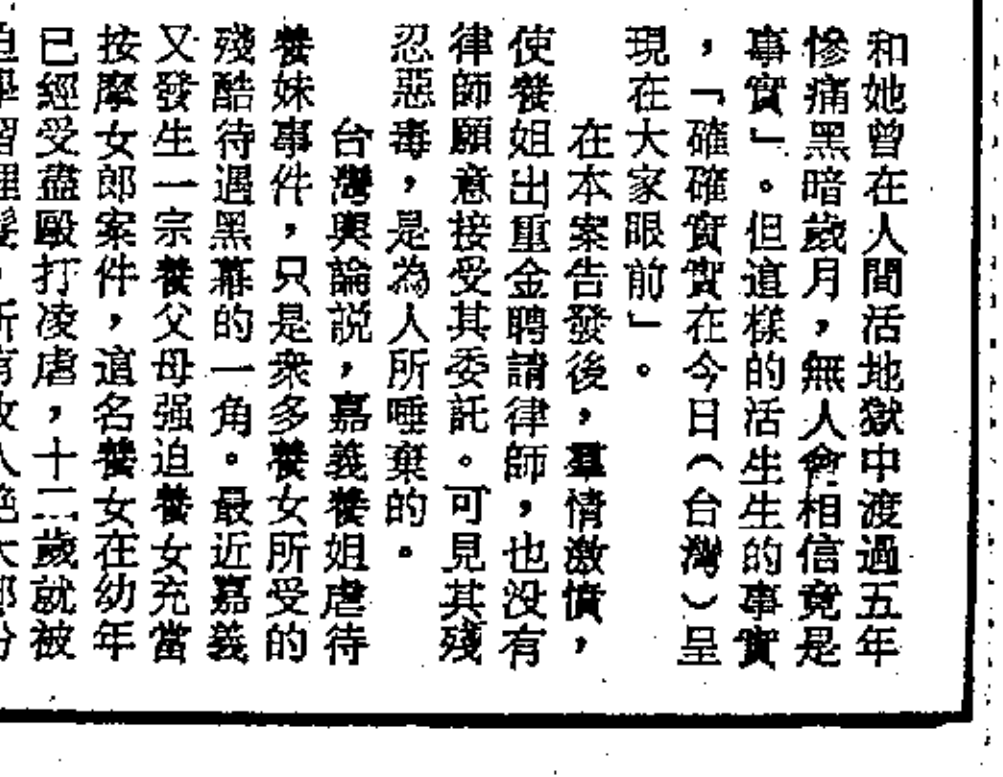 和她曾在人間活地獄中渡過五年
慘痛黑暗歲月，無人會相信竟是
事實」。但這樣的活生生的事實
，「確確實實在今日（台灣）呈
現在大家眼前」。
在本案告發後，羣情激憤，
使養姐出重金聘請律師，也没有
律師願意接受其委託。可見其殘
忍惡毒，是為人所唾棄的。
台灣輿論説，嘉義養姐虐待
養妹事件，只是衆多養女所受的
殘酷待遇黑幕的一角。最近嘉義
又發生一宗養父母强迫養女充當
按摩女郎案件，這名養女在幼年
已經受盡毆打凌虐，十二歲就被